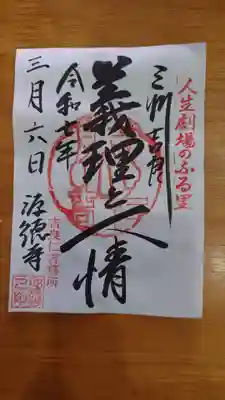 人生劇場のふる里
三州吉良
義理と人情
令和七年
三月六日
源徳寺